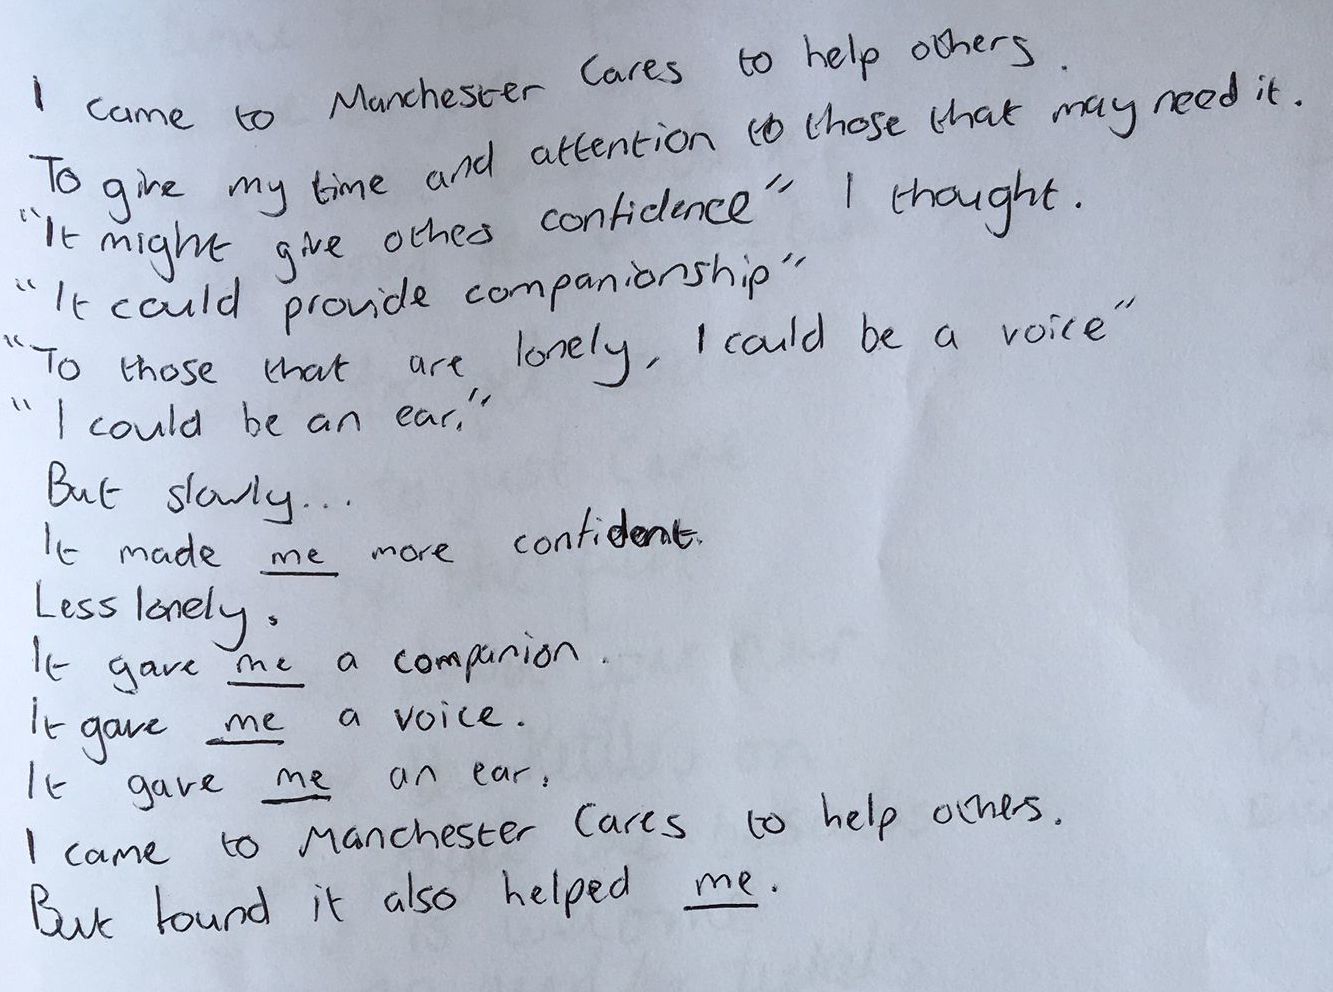 I came to Manchester Cares to help others.
To give my time and attention to those that may need it.
"It might give others confidence" I thought.
"It could provide companionship"
"To those that are lonely, I could be a voice"
"I could be an ear."
But slowly...
It made me more confident.
Less lonely.
It gave me a companion.
It gave me a voice.
It gave me an ear.
I came to Manchester Cares to help others.
But found it also helped me.